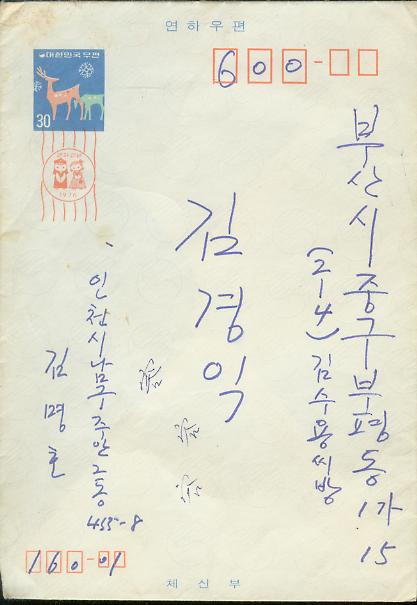 연하우편
대한민국우편
30
600-
1976
부산시 중구 부평동 1가 15
(2-4) 김수용씨방
김경익
인천시 남구 주안2동
455-8
김명호
160-01
체신부